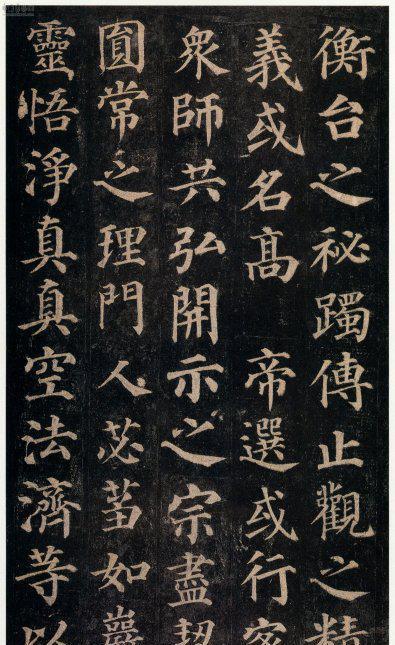 衡台之祕躅傳止觀之精
義或名髙 帝選或行密
衆師共弘開示之宗盡契
圓常之理門人苾蒭如巖
靈悟淨真真空法濟等以